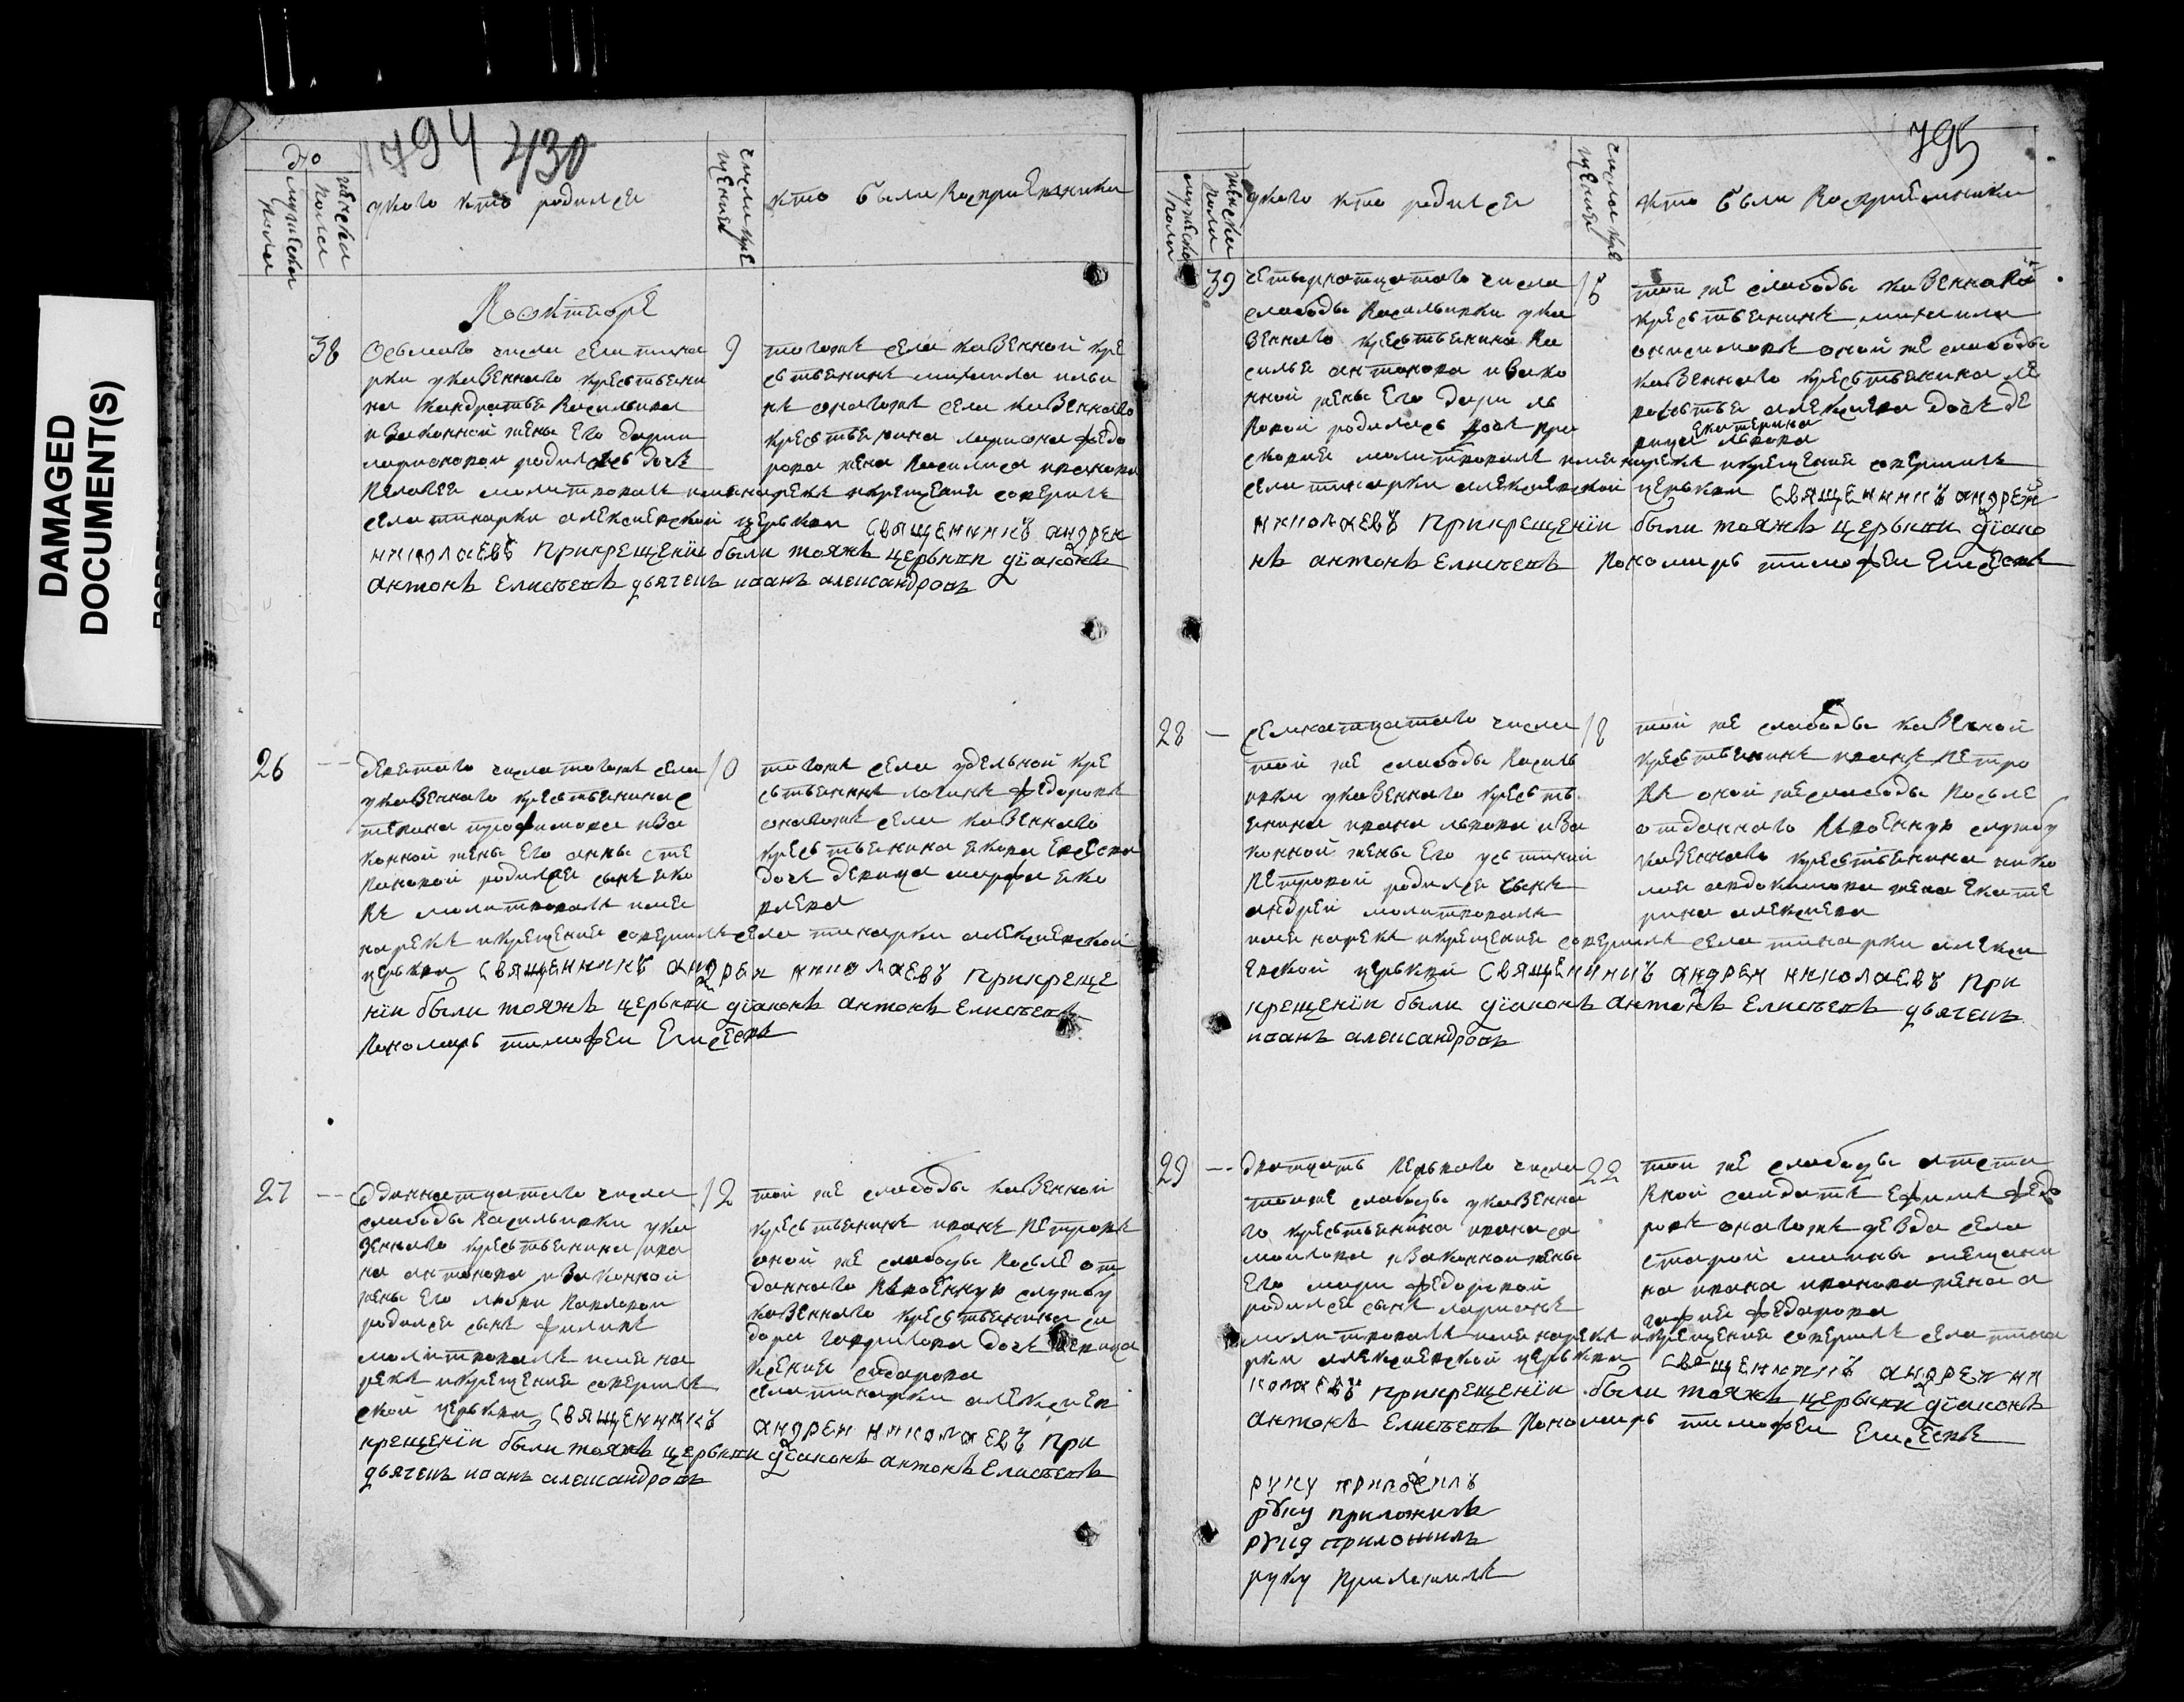 DAMAGED
DOCUMENT(S)
794 430
мужеска пола
женска пола
укого кто родился
числа крещения
кто были восприемники
В октябре
38
Осьмаго числа села тина
рки указеннаго крестьяни
на кандратья васильева
изаконной жены его дарьи
ларионовой родилась дочь
пелагея молитвовалъ имя нарекъ икрещение совершилъ
села тинарки алексиевской церькви священникъ андрей
николаевъ прикрещенiи были тояжъ церькви дiаконъ
антонъ елисеевъ дьячекъ иванъ александровъ
9
тогожъ села казенной кре
стьянинъ михаила ильи
нъ онагожъ села казеннаго
крестьянина лариона федо
рова жена василиса иванова
26
девятаго числа тогожъ села
указеннаго крестьянина с
тепана трофимова иза
конной жены его анны сте
пановой родился сынъ яко
въ молитвовалъ имя
нарекъ икрещение совершилъ села тинарки алексиевской
церькви священникъ андрей николаевъ прикреще
нiи были тояжъ церькви дiаконъ антонъ елисеевъ
пономарь тимофеи елисеевъ
10
тогожъ села удельной кре
стьянинъ логинъ федоровъ
онагожъ села казеннаго
крестьянина якова
дочь девица марфа яко
влева
27
Одиннатцатаго числа
слабоды васильевки ука
зеннаго крестьянина ива
на антонова изаконной
жены его любви павловой
родился сынъ филипъ
молитвовалъ имя на
рекъ икрещение совершилъ
ской церькви священникъ
крещенiи были тояжъ церькви дiаконъ антонъ елисеевъ
дьячекъ иванъ александровъ
12
той же слабоды казенной
крестьянинъ иванъ петровъ
оной же слабоды после от
даннаго ввоенную службу
казеннаго крестьянина си
дора гаврилова дочь девица
ксения сидорова
села тинарки алексиев
андрей николаевъ при
795
мужеска пола
женска пола
укого кто родился
числа крещения
кто были восприемники
39
четырнатцатаго числа
слабоды васильевки ука
зеннаго крестьянина ва
силья антонова изако
нной жены его дарьи ль
вовой родилась дочь пра
сковия молитвовалъ имя нарекъ икрещение совершилъ
села тинарки алексиевской церькви священникъ андрей
николаевъ прикрещенiи были тояжъ церькви дiако
нъ антонъ елисеевъ пономарь тимофеи елисеевъ
16
той же слабоды казенной
крестьянинъ михаила
онисимовъ оной же слабоды
казеннаго крестьянина ле
алексиева дочь де
вица екатерина львова
28
семнатцатаго числа
той же слабоды василь
евки указеннаго кресть
янина ивана львова иза
конной жены его устиньи
петровой родился сынъ
андрей молитвовалъ
имя нарекъ икрещение совершилъ села тинарки алекси
евской церькви священникъ андрей николаевъ при
крещенiи были дiаконъ антонъ елисеевъ дьячекъ
иванъ александровъ
18
той же слабоды казенной
крестьянинъ иванъ петро
въ оной же слабоды после
отданнаго ввоенную службу
казеннаго крестьянина нико
лая авдокимова жена екате
рина алексиева
29
дватцать перваго числа
той же слабоды указенна
го крестьянина ивана са
мойлова изаконной жены
его марьи федоровой
родился сынъ ларионъ
молитвовалъ имя нарекъ икрещение совершилъ села тина
рки алексиевской церькви священникъ андрей ни
колаевъ прикрещенiи были тояжъ церькви дiаконъ
антонъ елисеевъ пономарь тимофеи елисеевъ
22
той же слабоды отста
вной салдатъ ефимъ федо
ровъ онагожъ уезда села
старой маины мещани
на ивана иванова жена а
гафия федорова
руку приложилъ
руку приложилъ
руку приложилъ
руку приложилъ